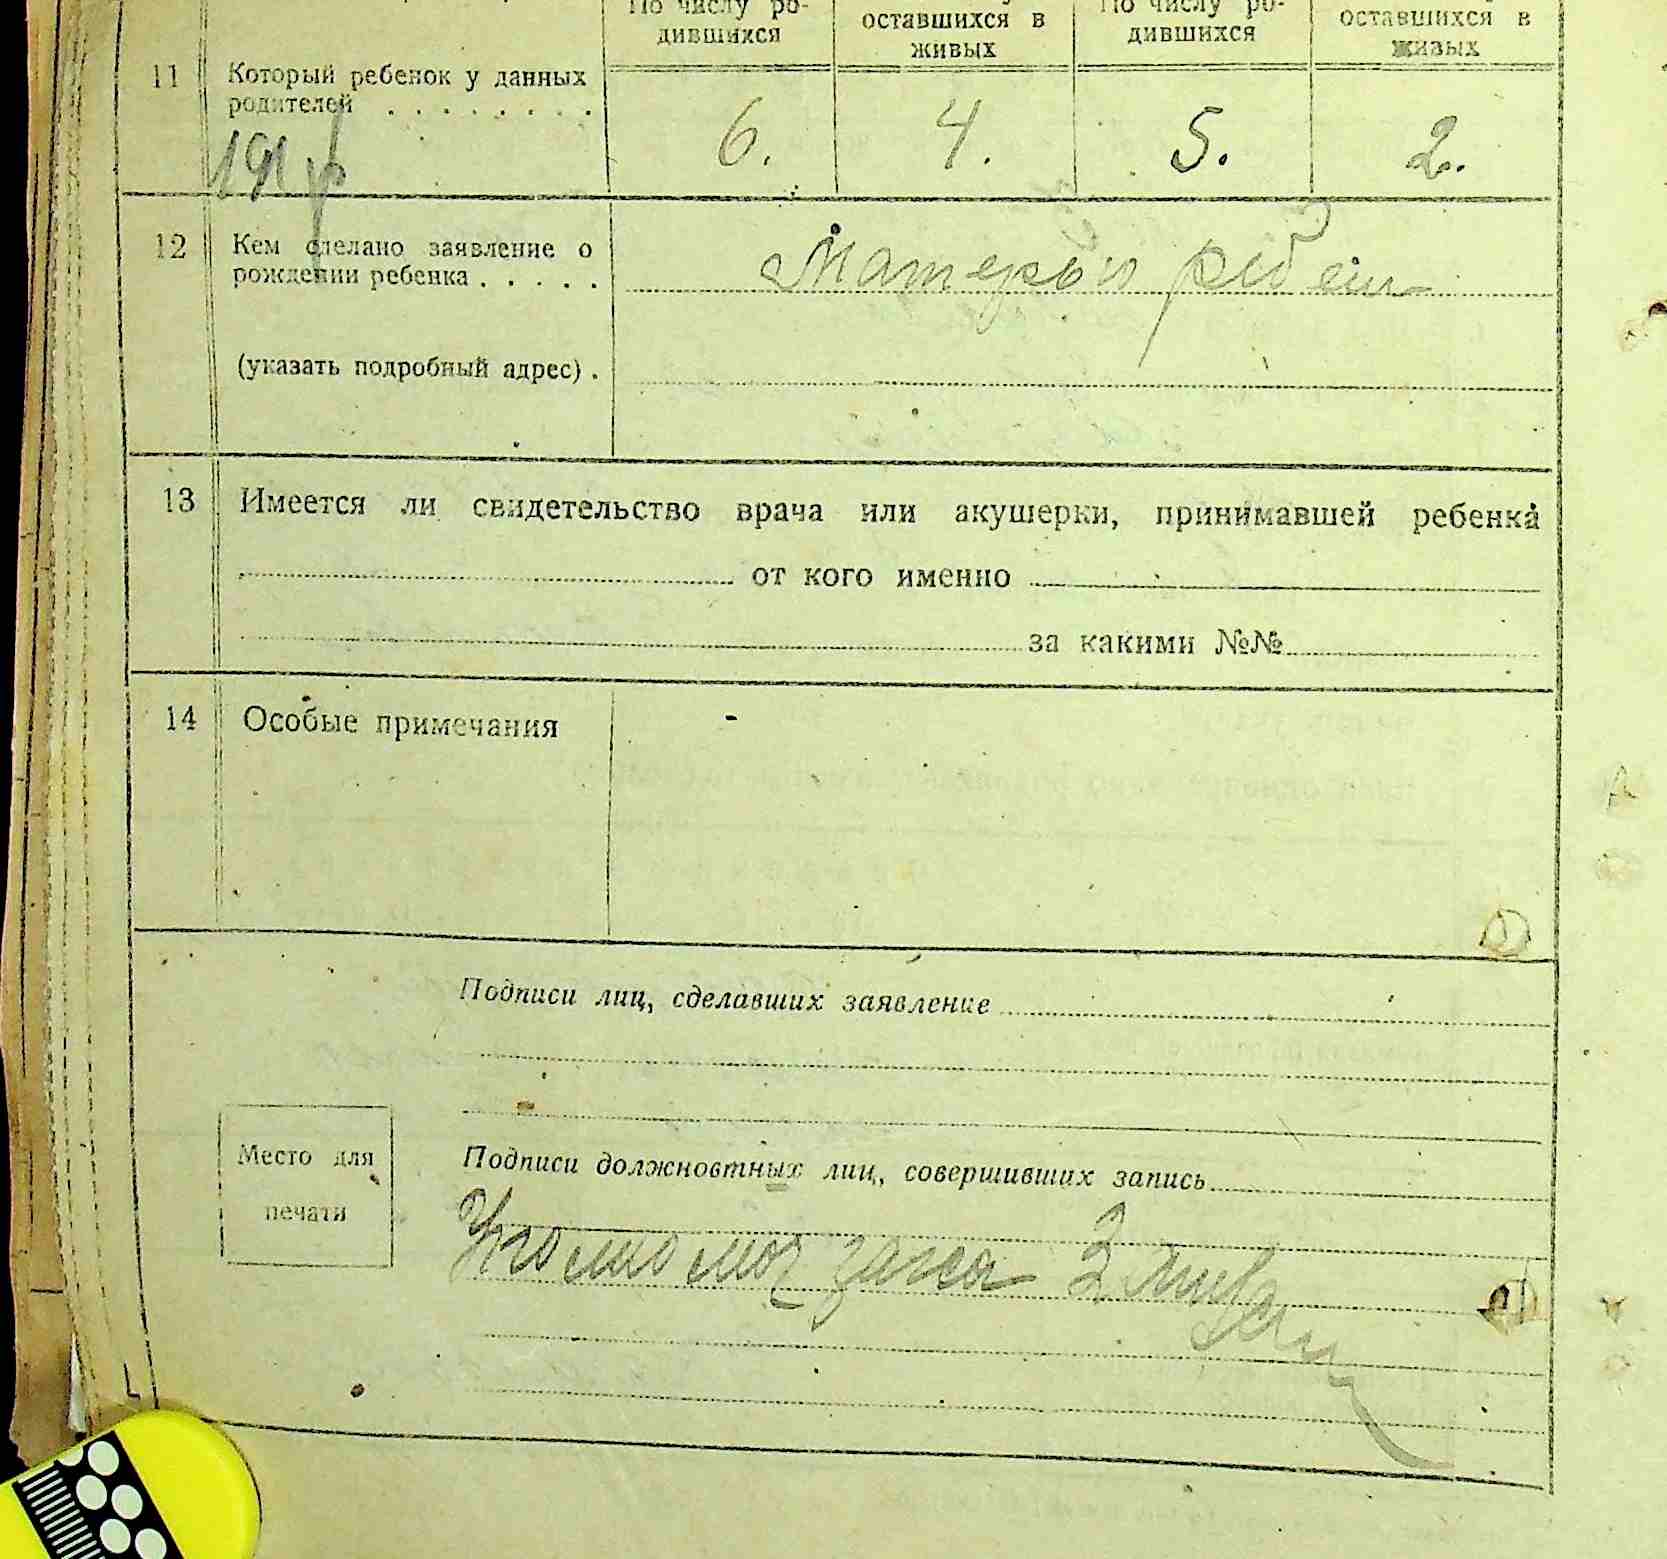 По числу ро-
дившихся
оставшихся в
живых
По числу ро-
дившихся
оставшихся в
живых
11 Который ребенок у данных
родителей . . . . . . . .
6. 4. 5. 2.
12 Кем сделано заявление о
рождении ребенка . . . . .
Матерью
(указать подробный адрес) .
13 Имеется ли свидетельство врача или акушерки, принимавшей ребенка
от кого именно
за какими №№
14 Особые примечания
-
Подписи лиц, сделавших заявление
Место для
печати
Подписи должновтных лиц, совершивших запись
загса